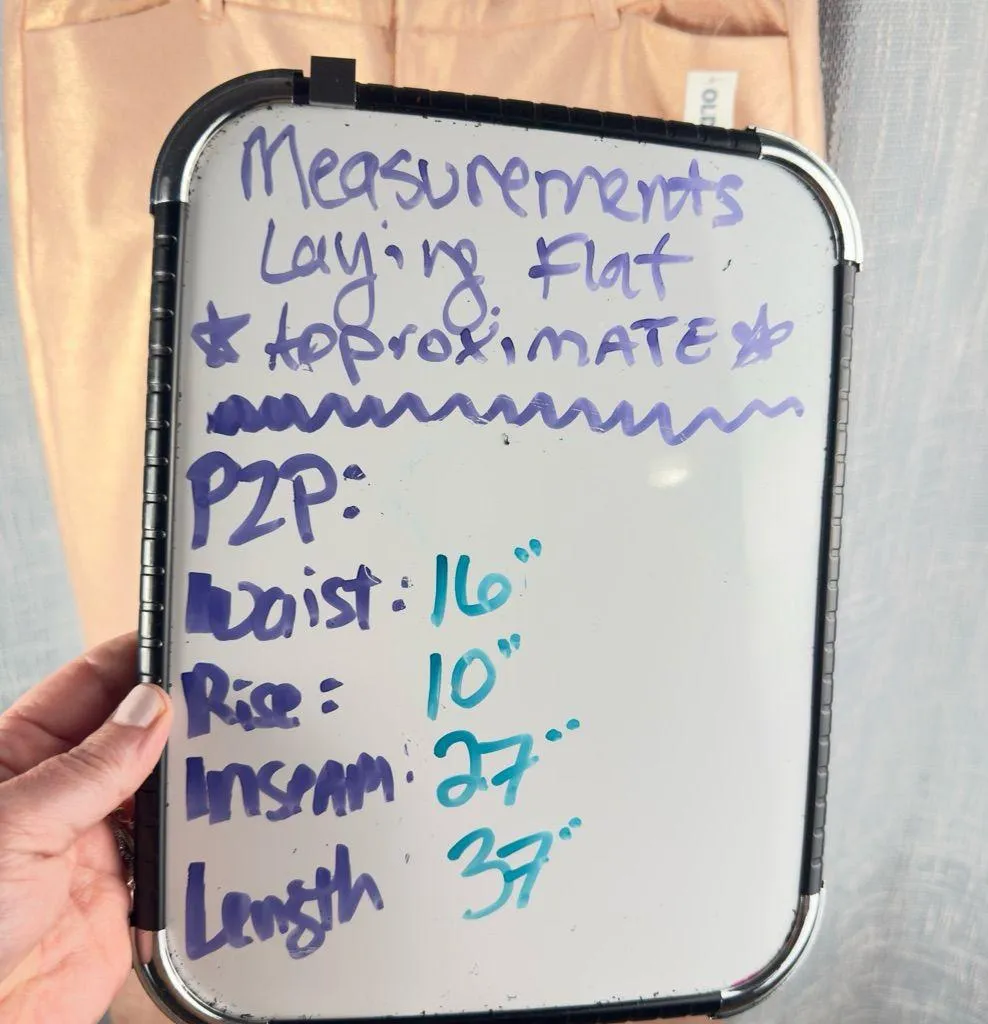 OL
Measurements
Laying Flat
☆ ApproxiMATE ☆
P2P:
Waist: 16"
Rise: 10"
Inseam: 27"
Length 37"